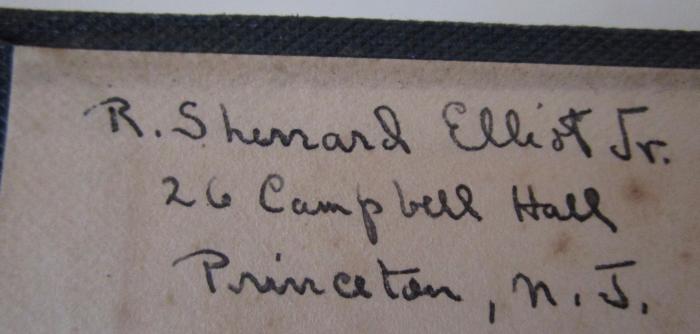 R. Sherrard Elliot Jr.
26 Campbell Hall
Princeton, N. J.